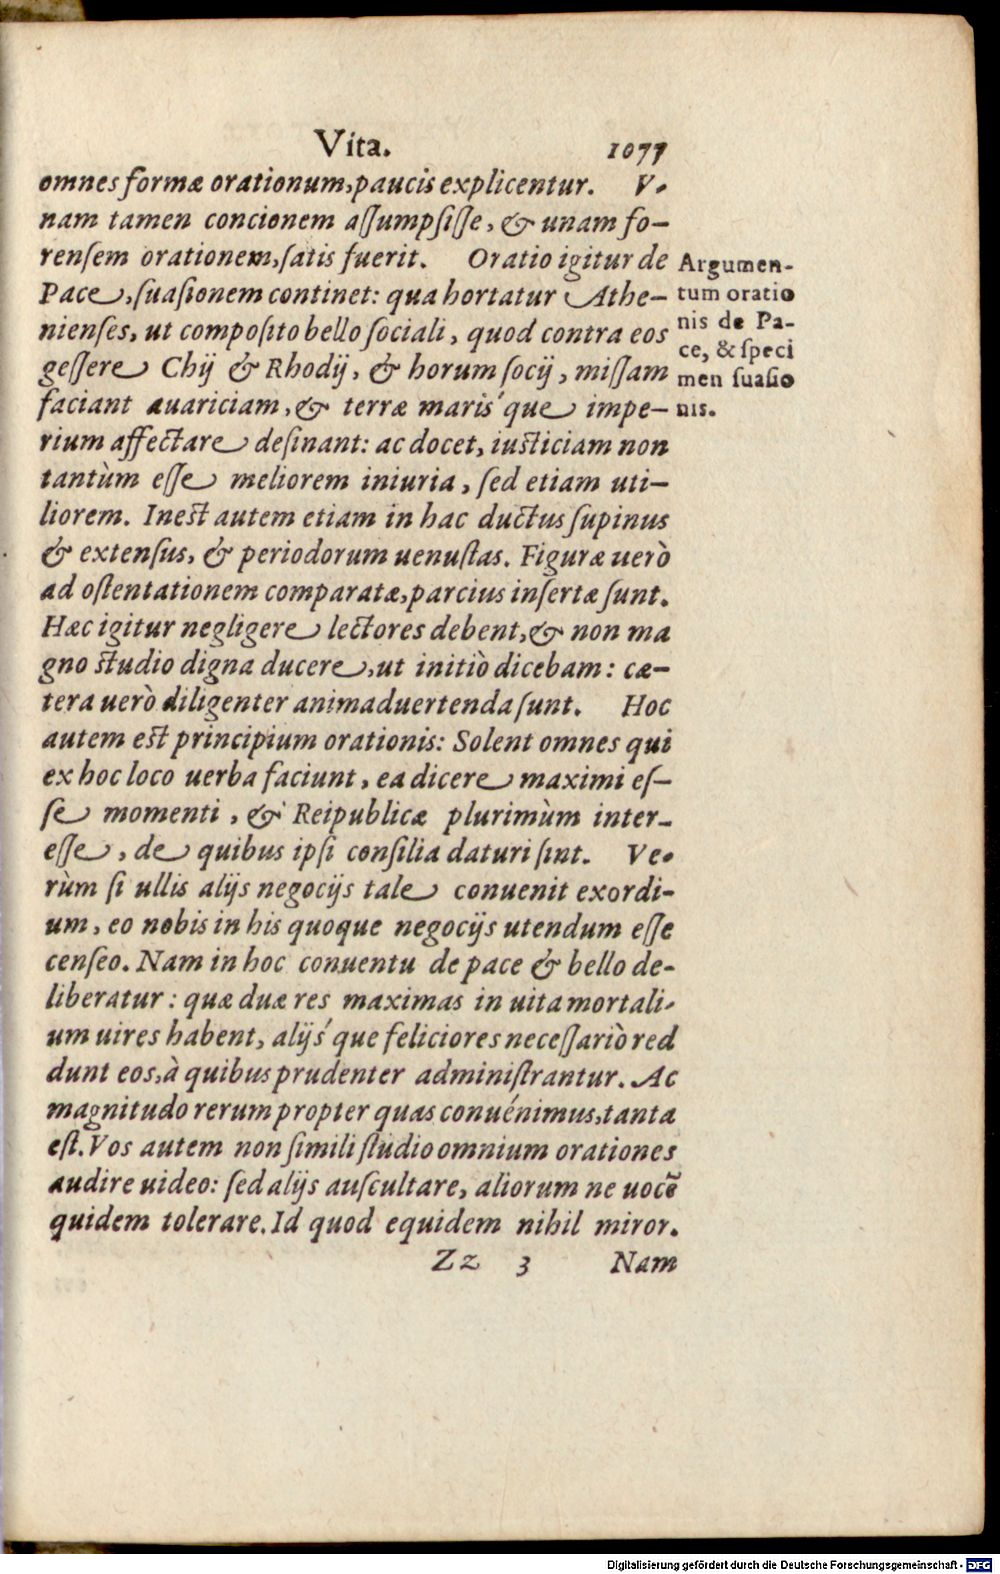 Vita. 1077
omnes formæ orationum, paucis explicentur. V-
nam tamen concionem aſſumpſiſſe, & unam fo-
renſem orationem, ſatis fuerit. Oratio igitur de
Pace, ſuaſionem continet: qua hortatur Athe-
nienſes, ut compoſito bello ſociali, quod contra eos
geſſere Chij & Rhodij, & horum ſocij, miſſam
faciant auariciam, & terræ maris´que impe-
rium affectare deſinant: ac docet, iuſticiam non
tantùm eſſe meliorem iniuria, ſed etiam uti-
liorem. Ineſt autem etiam in hac ductus ſupinus
& extenſus, & periodorum uenuſtas. Figuræ uerò
ad oſtentationem comparatæ, parcius inſertæ ſunt.
Hæc igitur negligere lectores debent, & non ma
gno ſtudio digna ducere, ut initiò dicebam: cæ-
tera uerò diligenter animaduertenda ſunt. Hoc
autem eſt principium orationis: Solent omnes qui
ex hoc loco uerba faciunt, ea dicere maximi eſ-
ſe momenti, & Reipublicæ plurimùm inter-
eſſe, de quibus ipſi conſilia daturi ſint. Ve-
rùm ſi ullis alijs negocijs tale conuenit exordi-
um, eo nobis in his quoque negocijs utendum eſſe
cenſeo. Nam in hoc conuentu de pace & bello de-
liberatur: quæ duæ res maximas in uita mortali-
um uires habent, alijs´que feliciores neceſſariò red
dunt eos, à quibus prudenter adminiſtrantur. Ac
magnitudo rerum propter quas conuénimus, tanta
eſt. Vos autem non ſimili ſtudio omnium orationes
audire uideo: ſed alijs auſcultare, aliorum ne uocē
quidem tolerare. Id quod equidem nihil miror.
Zz 3 Nam
Argumen-
tum oratio
nis de Pa-
ce, & ſpeci
men ſuaſio
nis.
Digitalisierung gefördert durch die Deutsche Forschungsgemeinschaft - DFG